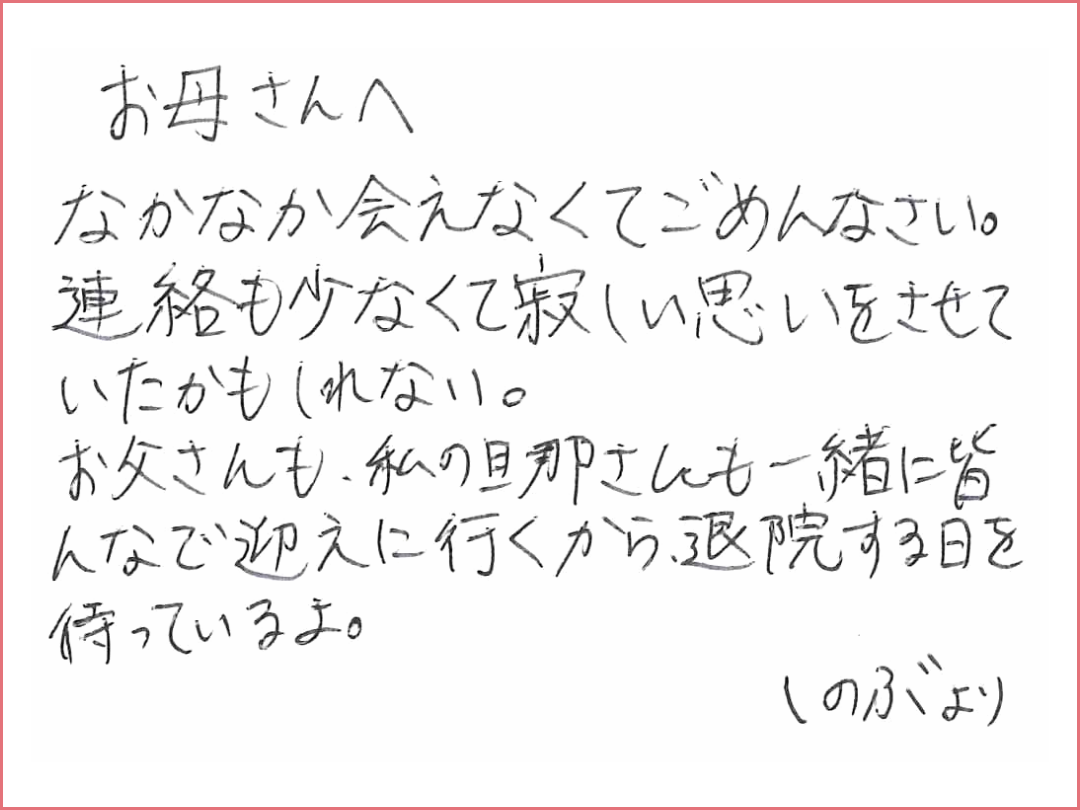 お母さんへ
なかなか会えなくてごめんなさい。
連絡も少なくて寂しい思いをさせて
いたかもしれない。
お父さんも、私の旦那さんも一緒に皆
んなで迎えに行くから、退院する日を
待っているよ。
しのぶより